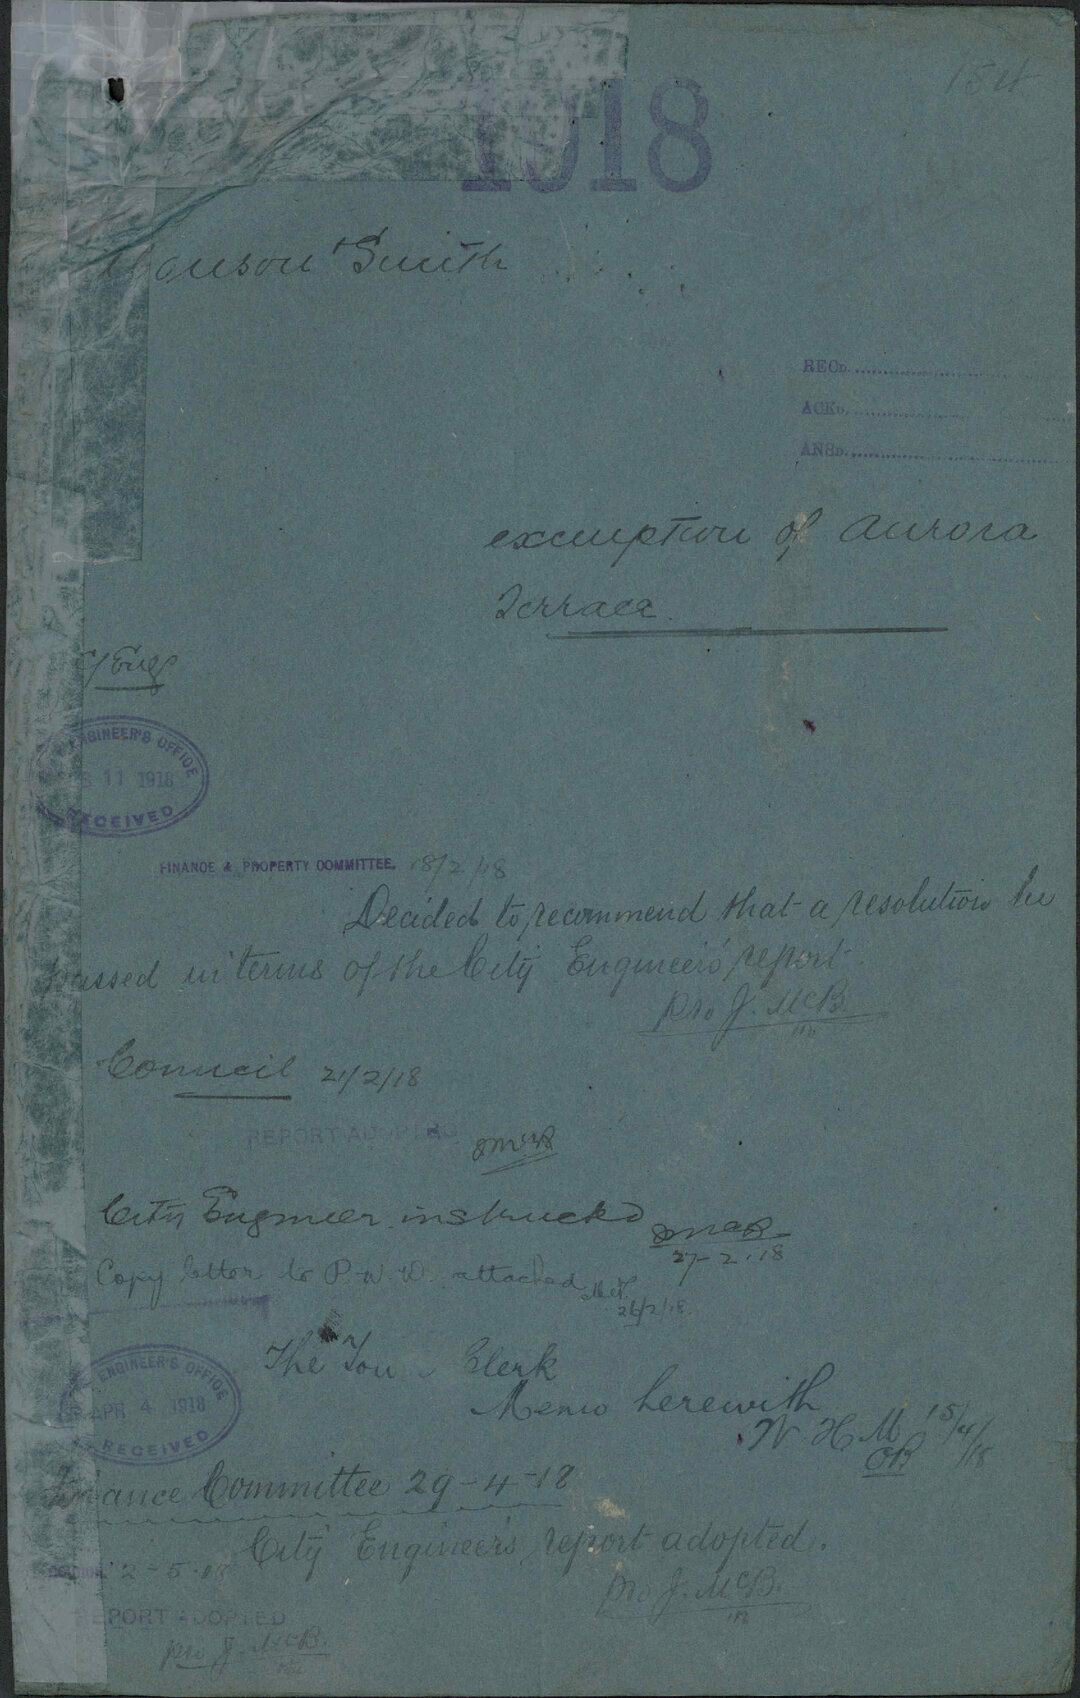 1918
Smith
RECD.
ACKD.
ANSD.
exemption of Aurora
Terrace
C/Eng
ENGINEER'S OFFICE
11 1918
RECEIVED
FINANCE & PROPERTY COMMITTEE. 18/2/18
Decided to recommend that a resolution be
passed in terms of the City Engineer's report.
pro J. McB.
Council 21/2/18
REPORT ADOPTED
City Engineer instructed
27-2-18
Copy letter to P.W.D. attached
26/2/18.
ENGINEER'S OFFICE
APR 4 1918
RECEIVED
The Clerk
Memo herewith
W H M 15/4/18
Finance Committee 29-4-18
City Engineer's report adopted.
pro J. McB.
2-5-18
REPORT ADOPTED
pro J. McB.